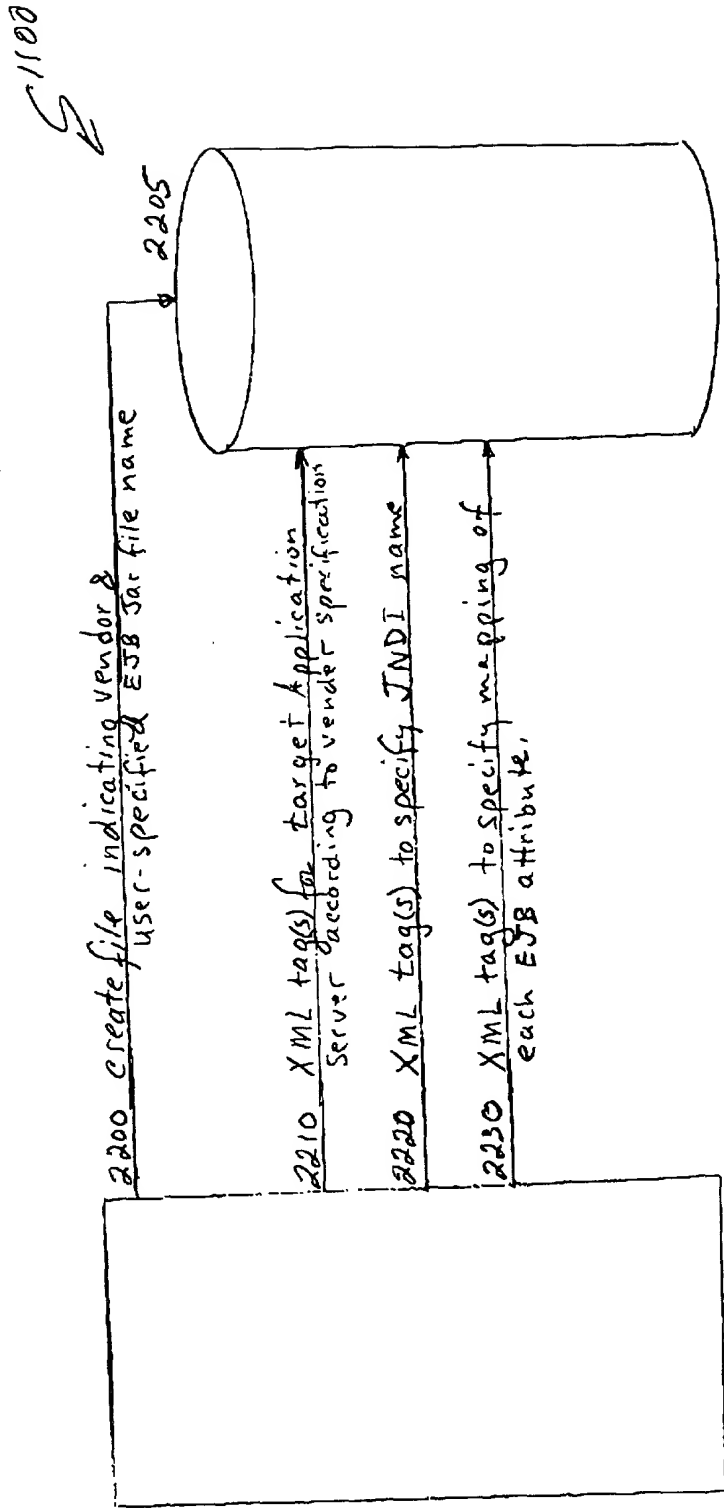 1100
2205
2200 create file indicating vendor &
user-specified EJB Jar file name
2210 XML tag(s) for target Application
Server according to vender specification
2220 XML tag(s) to specify JNDI name
2230 XML tag(s) to specify mapping of
each EJB attribute.